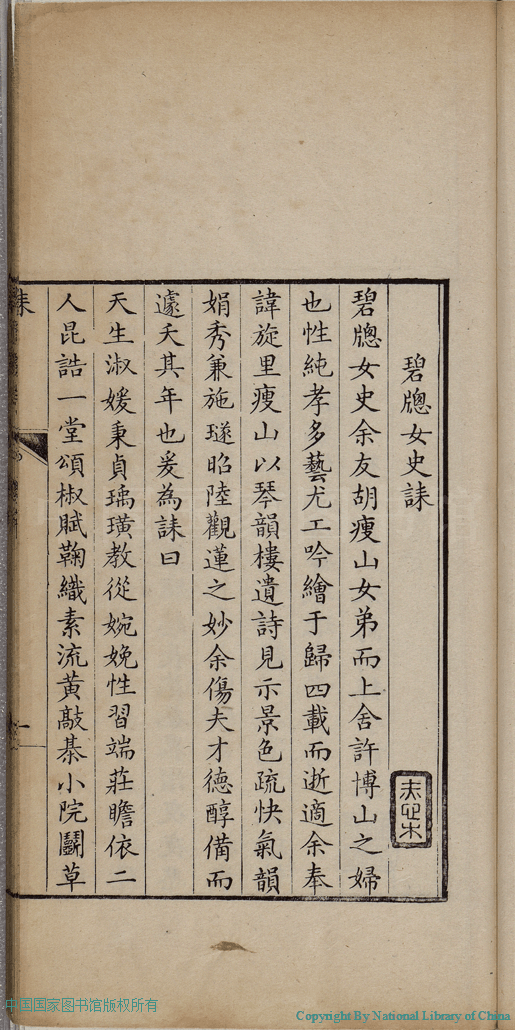 碧牕女史誄
碧牕女史余友胡瘦山女弟而上舍許博山之婦
也性純孝多藝尤工吟繪于歸四載而逝適余奉
諱旋里瘦山以琴韻樓遺詩見示景色疏快氣韻
娟秀兼施璲昭陸觀蓮之妙余傷夫才德醇備而
遽夭其年也爰為誄曰
天生淑媛秉貞瑀璜教從婉娩性習端莊瞻依二
人昆誥一堂頌椒賦鞠織素流黃敲棊小院鬭草
誄
一
中国国家图书馆版权所有
Copyright By National Library of China